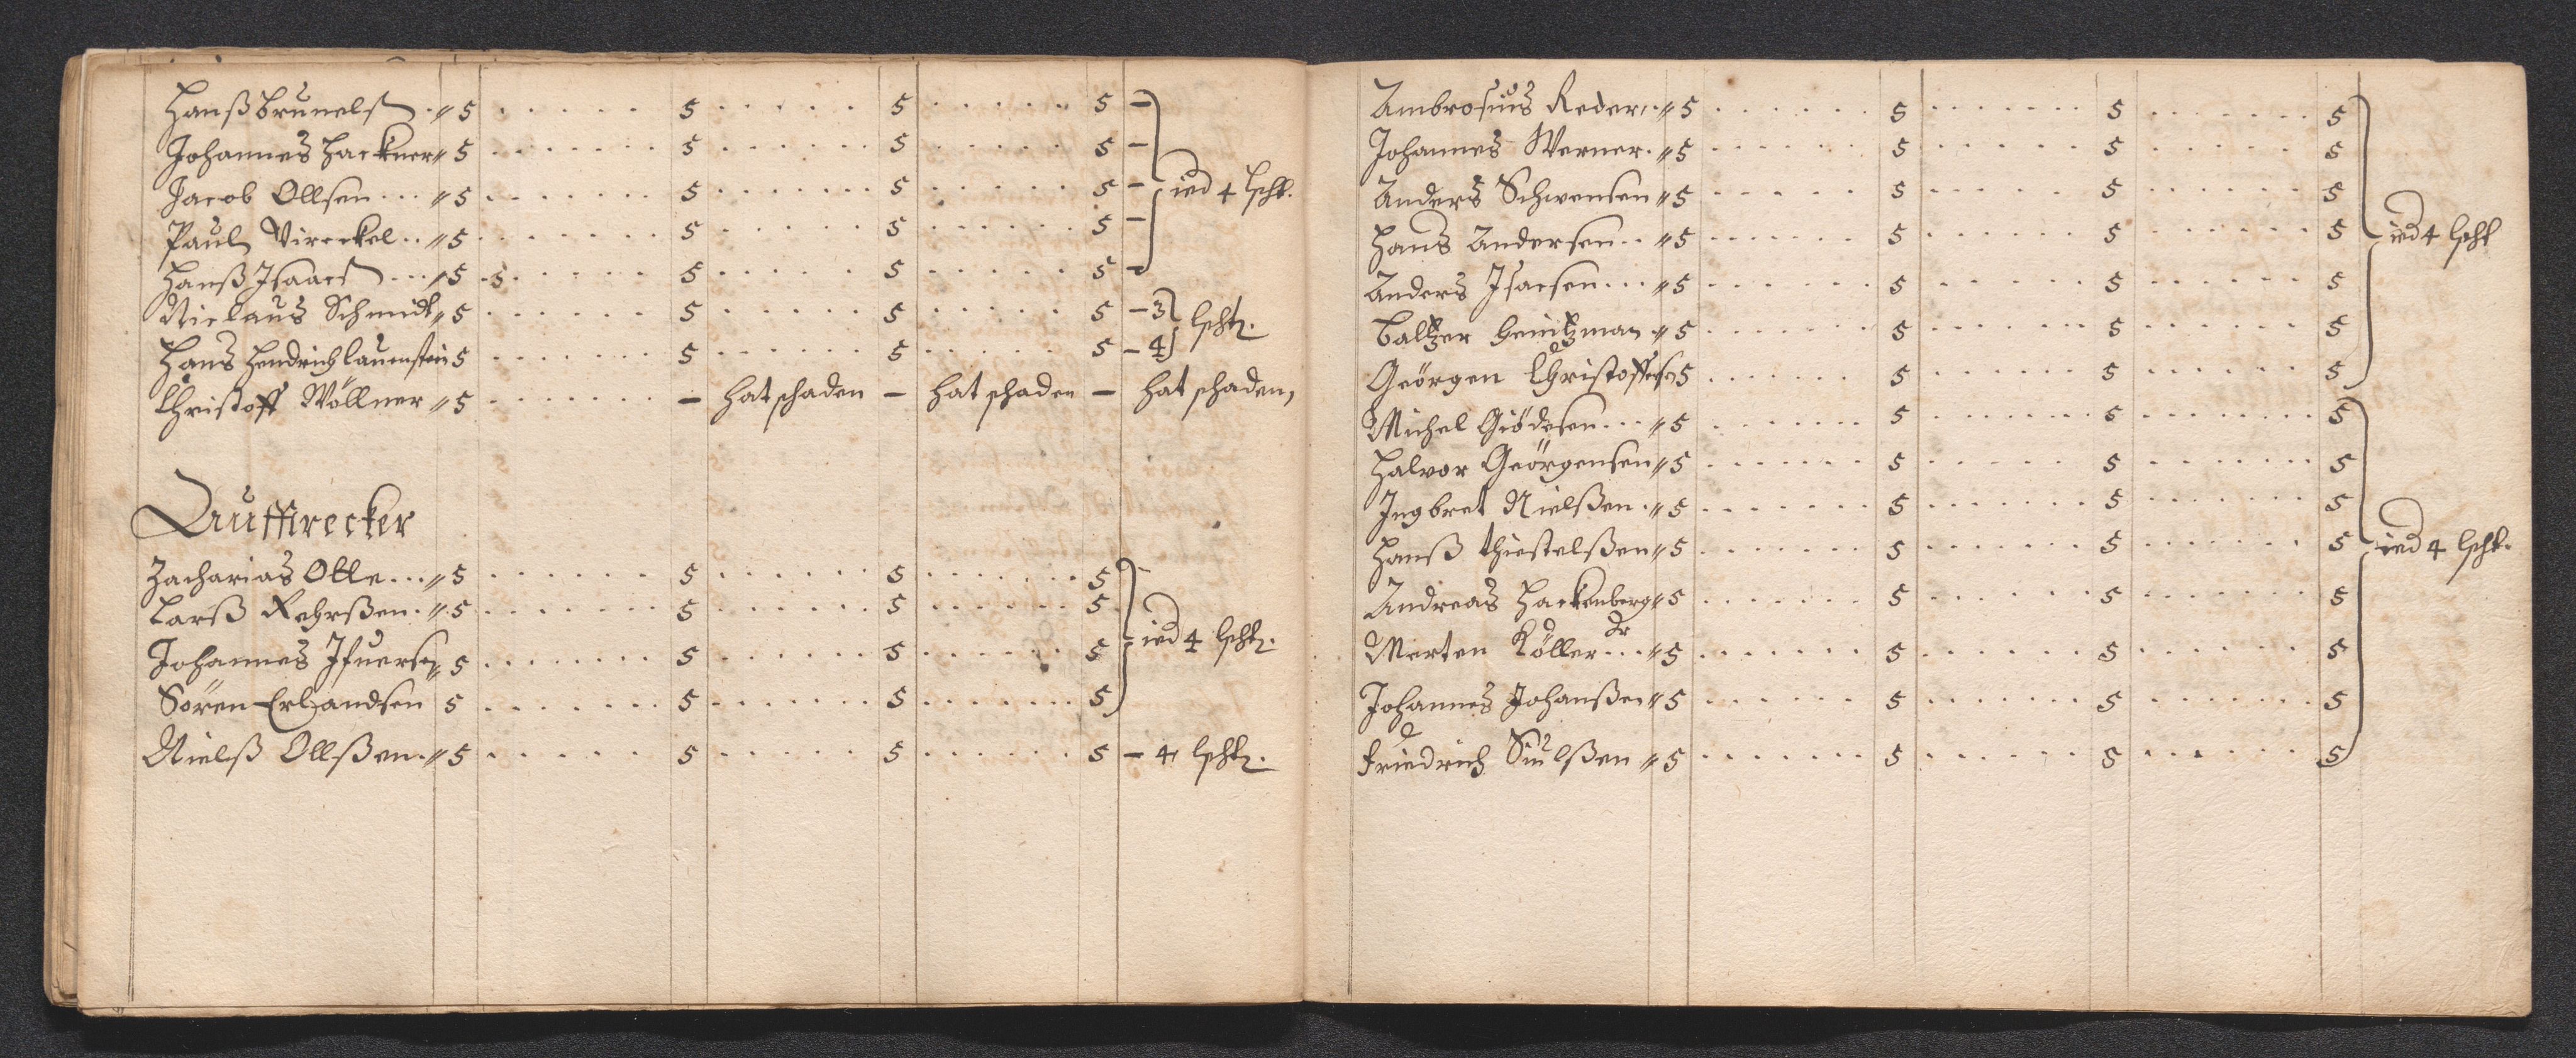 Hanß Brunelß . „ 5 . . . . . . 5 . . . . . 5 . . . . . 5 –
Johannes Hackner „ 5 . . . . . . . 5 . . . . . . 5 . . . . . 5 –
Jacob Ollsen . . . „ 5 . . . . . . . 5 . . . . . . . 5 . . . . . 5 – ied 4 lscht.
Paul Vireckel . . „ 5 . . . . . . . 5 . . . . . . 5 . . . . . . 5 –
Hanß Isaacs . . . „ 5 . 5 . . . . . 5 . . . . . 5 . . . . . 5 –
Niclaus Schmidt „ 5 . . . . . . 5 . . . . . . 5 . . . . . 5 – 3 lscht.
Hans Hendrich Lauenstein 5 . . . . . . . 5 . . . . . . 5 . . . . . 5 – 4
Christoff Wöllner „ 5 . . . . . . . – hat schaden – hat schaden – hat schaden,
Auffstrecker
Zacharias Otte . . . „ 5 . . . . . . 5 . . . . . . 5 . . . . . . . 5
Larß Rehrßen . „ 5 . . . . . . . 5 . . . . . . 5 . . . . . . 5
Johannes Ifuersen „ 5 . . . . . . . . 5 . . . . . . 5 . . . . . . 5 ied 4 lscht.
Sören Erlandsen 5 . . . . . . . 5 . . . . . . . 5 . . . . . . 5
Nielß Ollßen . „ 5 . . . . . 5 . . . . . 5 . . . . . . 5 – 4 lscht.
Ambrosius Reder . „ 5 . . . . . . . 5 . . . . . . . 5 . . . . . . . 5
Johannes Werner . „ 5 . . . . . . 5 . . . . . 5 . . . . . 5
Anders Schwensen „ 5 . . . . . 5 . . . . . 5 . . . . . . 5
Hans Andersen . . „ 5 . . . . . . 5 . . . . . . 5 . . . . . . 5 ied 4 lscht
Anders Isacsen . . . „ 5 . . . . . . 5 . . . . . . 5 . . . . . . 5
Baltzer Heintzman „ 5 . . . . . . . 5 . . . . . . 5 . . . . . . 5
Geörgen Christoffersen 5 . . . . . . 5 . . . . . . 5 . . . . . . 5
Michel Giödesen . . . „ 5 . . . . . . . 5 . . . . . . . 5 . . . . . . . 5
Halvor Geörgensen „ 5 . . . . . . 5 . . . . . 5 . . . . . . 5
Ingbret Nielßen . „ 5 . . . . . . . 5 . . . . . . . 5 . . . . . . . 5
Hanß Thiestelßen „ 5 . . . . . . 5 . . . . . . . 5 . . . . . . 5 ied 4 lscht.
Andreas Hackenberg „ 5 . . . . . . . 5 . . . . . . 5 . . . . . . 5
Merten Köller . . . „ 5 . . . . . . . 5 . . . . . . 5 . . . . . . 5
Johannes Johanßen „ 5 . . . . . . 5 . . . . . . . 5 . . . . . . . 5
Friedrich Siulßen „ 5 . . . . . . . 5 . . . . . 5 . . . . . . 5